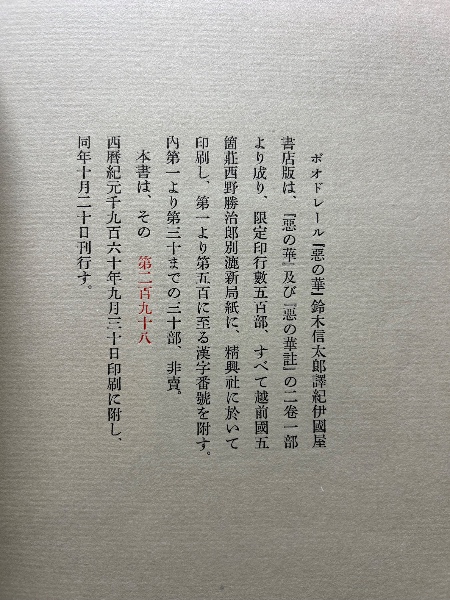 ボオドレール『惡の華』鈴木信太郎譯紀伊國屋
書店版は、『惡の華』及び『惡の華註』の二卷一部
より成り、限定印行數五百部、すべて越前國五
箇莊西野勝治郎別漉新局紙に、精興社に於いて
印刷し、第一より第五百に至る漢字番號を附す。
內第一より第三十までの三十部、非賣。
本書は、その 第二百九十八
西曆紀元千九百六十年九月三十日印刷に附し、
同年十月二十日刊行す。